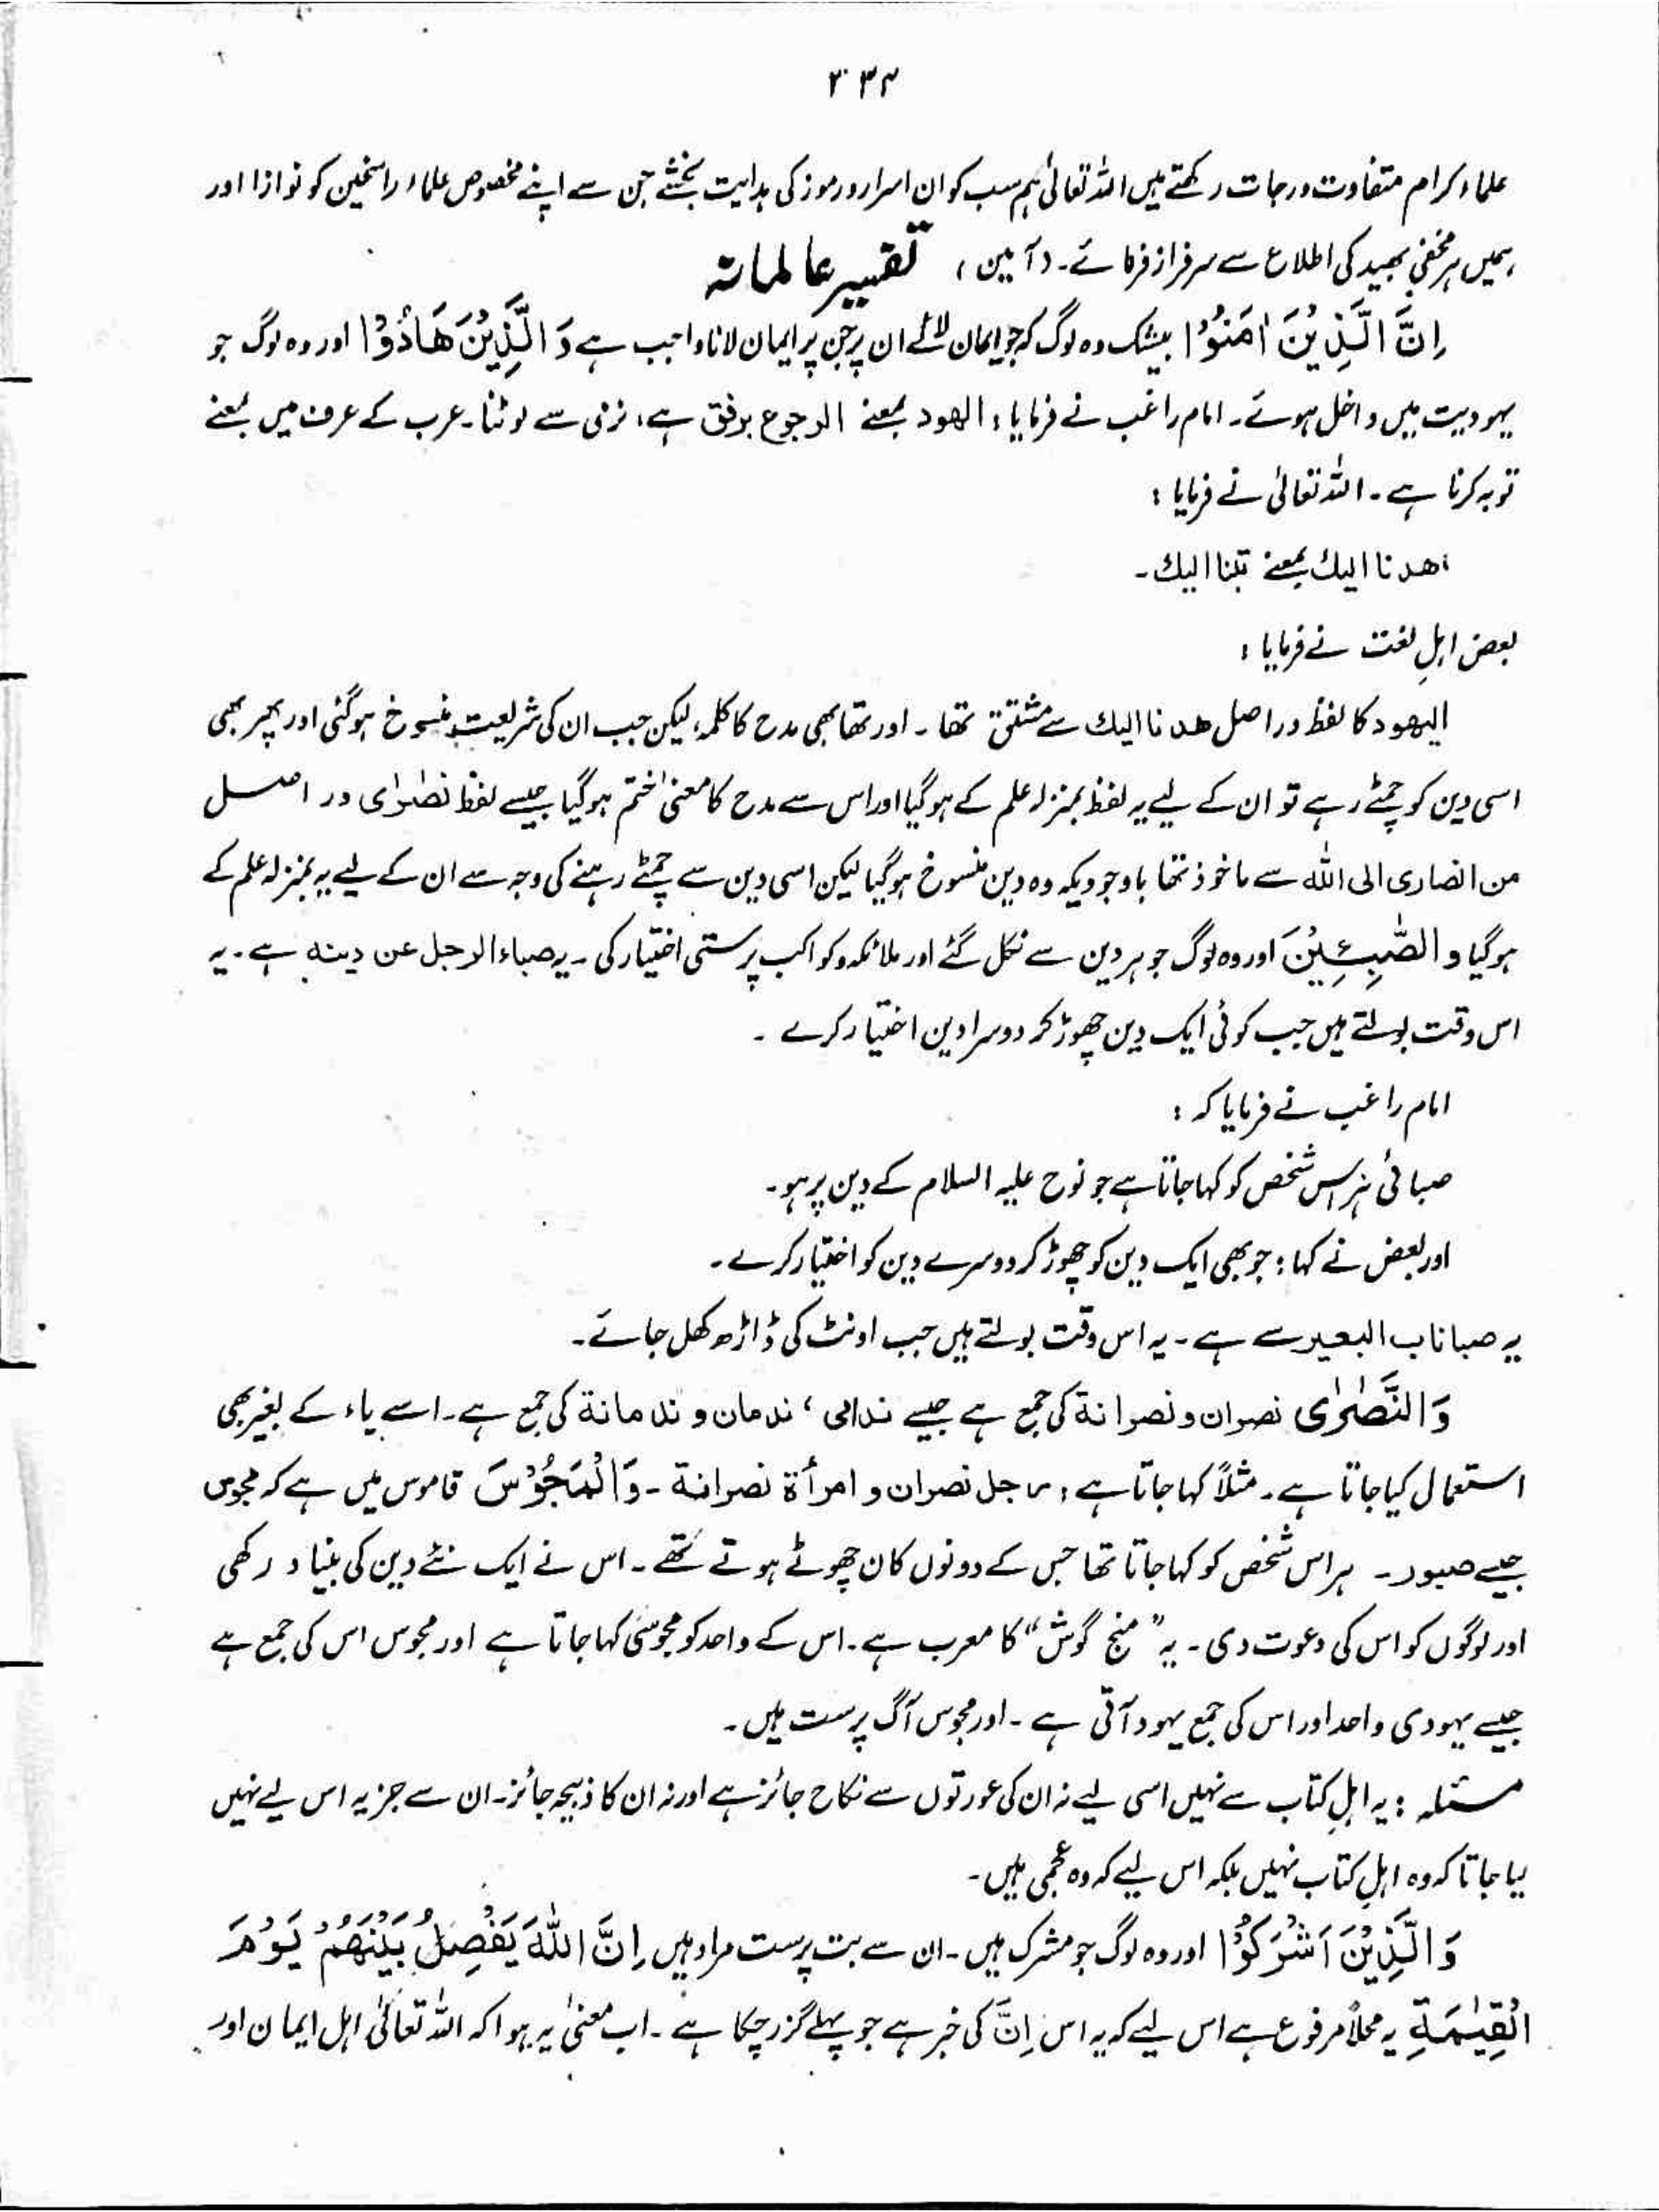 ۲۳۴
علماء کرام متفاوت درجات رکھتے ہیں اللہ تعالیٰ ہم سب کو ان اسرار و رموز کی ہدایت بخشے جن سے اپنے مخصوص علماء راسخین کو نوازا اور
ہمیں ہر مخفی بھید کی اطلاع سے سرفراز فرمائے۔ (آمین) تفسیر عالمانہ
اِنَّ الَّذِیْنَ اٰمَنُوْا بیشک وہ لوگ کہ جو ایمان لائے ان پر جن پر ایمان لانا واجب ہے وَ الَّذِیْنَ هَادُوْا اور وہ لوگ جو
یہودیت میں داخل ہوئے۔ امام راغب نے فرمایا: الھود بمعنے الرجوع برفق ہے، نرمی سے لوٹنا۔ عرب کے عرف میں بمعنے
توبہ کرنا ہے۔ اللہ تعالیٰ نے فرمایا:
اھدنا الیك بمعنے تبنا الیك۔
بعض اہلِ لغت نے فرمایا:
الیھود کا لفظ در اصل ھدنا الیك سے مشتق تھا۔ اور تھا بھی مدح کا کلمہ، لیکن جب ان کی شریعت منسوخ ہوگئی اور پھر بھی
اسی دین کو چمٹے رہے تو ان کے لیے یہ لفظ بمنزلہ علم کے ہوگیا اور اس سے مدح کا معنیٰ ختم ہوگیا جیسے لفظ نصٰرٰی در اصل
من انصاری الی اللّٰہ سے ماخوذ تھا باوجودیکہ وہ دین منسوخ ہوگیا لیکن اسی دین سے چمٹے رہنے کی وجہ سے ان کے لیے یہ بمنزلہ علم کے
ہوگیا و الصّٰبِئِیْنَ اور وہ لوگ جو ہر دین سے نکل گئے اور ملائکہ و کواکب پرستی اختیار کی۔ یہ صباء الرجل عن دینه ہے۔ یہ
اس وقت بولتے ہیں جب کوئی ایک دین چھوڑ کر دوسرا دین اختیار کرے۔
امام راغب نے فرمایا کہ:
صبائی ہر اس شخص کو کہا جاتا ہے جو نوح علیہ السلام کے دین پر ہو۔
اور بعض نے کہا: جو بھی ایک دین کو چھوڑ کر دوسرے دین کو اختیار کرے۔
یہ صبا ناب البعیر سے ہے۔ یہ اس وقت بولتے ہیں جب اونٹ کی ڈاڑھ کھل جائے۔
وَ النَّصٰرٰی نصران و نصرانة کی جمع ہے جیسے ندامی، ندمان و ندمانة کی جمع ہے۔ اسے یاء کے بغیر بھی
استعمال کیا جاتا ہے۔ مثلاً کہا جاتا ہے: رجل نصران و امرأة نصرانة۔ وَالْمَجُوْسَ قاموس میں ہے کہ مجوس
جیسے صبور۔ ہر اس شخص کو کہا جاتا تھا جس کے دونوں کان چھوٹے ہوتے تھے۔ اس نے ایک نئے دین کی بنیاد رکھی
اور لوگوں کو اس کی دعوت دی۔ یہ "منج گوش" کا معرب ہے۔ اس کے واحد کو مجوسی کہا جاتا ہے اور مجوس اس کی جمع ہے
جیسے یہودی واحد اور اس کی جمع یہود آتی ہے۔ اور مجوس آگ پرست ہیں۔
مسئلہ: یہ اہلِ کتاب سے نہیں اسی لیے نہ ان کی عورتوں سے نکاح جائز ہے اور نہ ان کا ذبیحہ جائز۔ ان سے جزیہ اس لیے نہیں
لیا جاتا کہ وہ اہلِ کتاب نہیں بلکہ اس لیے کہ وہ عجمی ہیں۔
وَ الَّذِیْنَ اَشْرَكُوْا اور وہ لوگ جو مشرک ہیں۔ ان سے بت پرست مراد ہیں اِنَّ اللّٰهَ یَفْصِلُ بَیْنَهُمْ یَوْمَ
الْقِیٰمَةِ یہ محلاً مرفوع ہے اس لیے کہ یہ اس اِنَّ کی خبر ہے جو پہلے گزر چکا ہے۔ اب معنیٰ یہ ہوا کہ اللہ تعالیٰ اہل ایمان اور